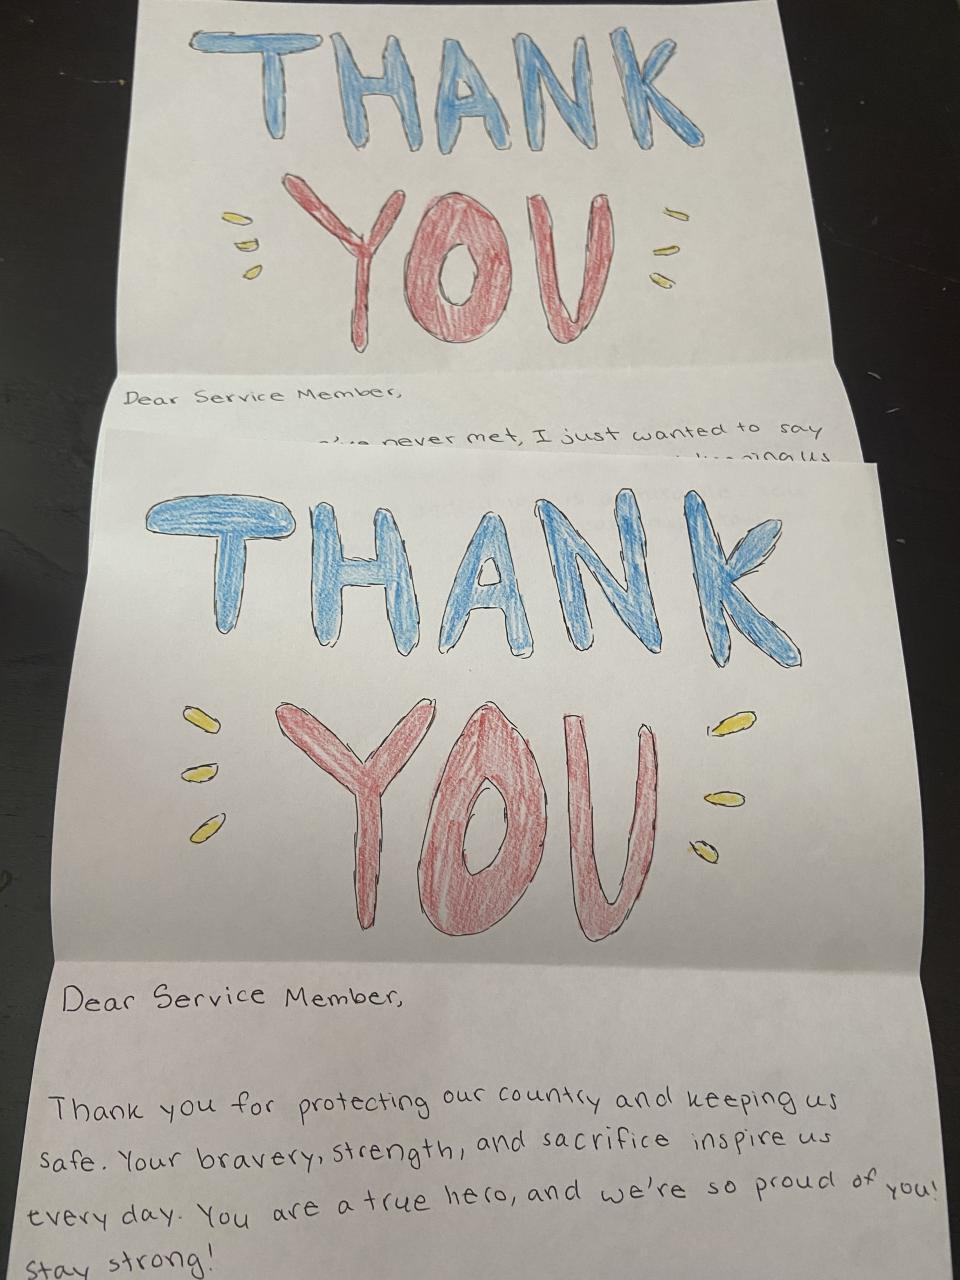 THANK
YOU
Dear Service Member,
never met, I just wanted to say
us
THANK
YOU
Dear Service Member,
Thank you for protecting our country and keeping us
safe. Your bravery, strength, and sacrifice inspire us
every day. You are a true hero, and we're so proud of you!
Stay strong!